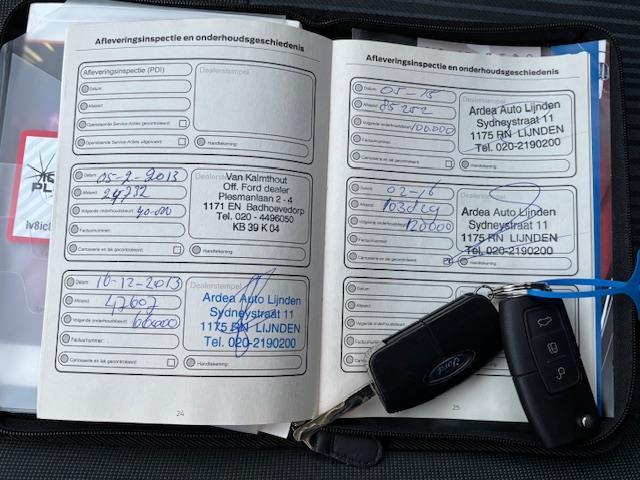 Afleveringsinspectie en onderhoudsgeschiedenis
Afleveringsinspectie (PDI)
Datum:
Afstand:
Openstaande Service-Acties gecontroleerd:
Openstaande Service-Acties uitgevoerd:
Dealerstempel
Handtekening:
Datum: 05-2-2013
Afstand: 24732
Volgende onderhoudsbeurt: 40.000
Factuurnummer:
Carrosserie en lak gecontroleerd:
Van Kalmthout
Off. Ford dealer
Plesmanlaan 2 - 4
1171 EN Badhoevedorp
Tel. 020 - 4496050
KB 39 K 04
Handtekening:
Datum: 10-12-2013
Afstand: 47607
Volgende onderhoudsbeurt: 60000
Factuurnummer:
Carrosserie en lak gecontroleerd:
Dealerstempel
Ardea Auto Lijnden
Sydneystraat 11
1175 RN LIJNDEN
Tel. 020-2190200
Handtekening:
24
Afleveringsinspectie en onderhoudsgeschiedenis
Datum: 05-15
Afstand: 85252
Volgende onderhoudsbeurt: 100.000
Factuurnummer:
Carrosserie en lak gecontroleerd:
Ardea Auto Lijnden
Sydneystraat 11
1175 RN LIJNDEN
Tel. 020-2190200
Handtekening:
Datum: 02-16
Afstand: 103029
Volgende onderhoudsbeurt: 120000
Factuurnummer:
Carrosserie en lak gecontroleerd:
Ardea Auto Lijnden
Sydneystraat 11
1175 RN LIJNDEN
Tel. 020-2190200
Handtekening:
Datum:
Afstand:
Dealerstempel
25
Ford